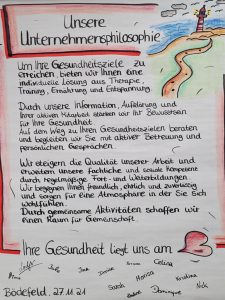 Unsere
Unternehmensphilosophie
Um Ihre Gesundheitsziele zu
erreichen, bieten wir Ihnen eine
individuelle Lösung aus Therapie,
Training, Ernährung und Entspannung.
Durch unsere Information, Aufklärung und
Ihrer aktiven Mitarbeit stärken wir Ihr Bewusstsein
für Ihre Gesundheit.
Auf dem Weg zu Ihren Gesundheitszielen beraten
und begleiten wir Sie mit aktiver Betreuung und
persönlichen Gesprächen.
Wir steigern die Qualität unserer Arbeit und
erweitern unsere fachliche und soziale Kompetenz
durch regelmäßige Fort- und Weiterbildungen.
Wir begegnen Ihnen freundlich, ehrlich und zuverlässig
und sorgen für eine Atmosphäre in der Sie sich
wohlfühlen.
Durch gemeinsame Aktivitäten schaffen wir
einen Raum für Gemeinschaft.
Ihre Gesundheit liegt uns am
Celina
Sarah
Marisa
Kristina
Dominique
Nick
Bödefeld, 27.11.21